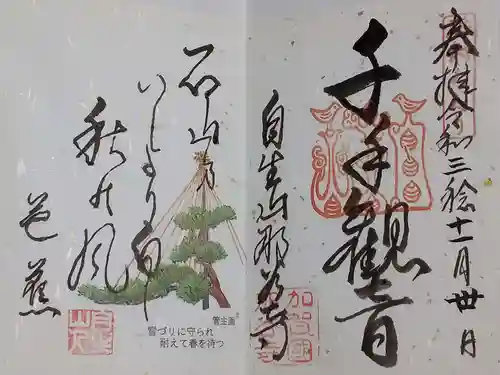 奉拝 令和三秊十一月丗日
千手観音
自生山那谷寺
加賀國
石山の
いしより白し
秋の風
芭蕉
管主画
雪づりに守られ
耐えて春を待つ